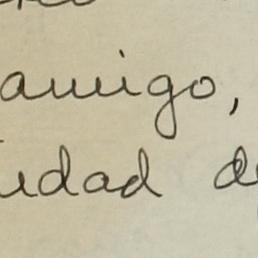 amigo,
udad de